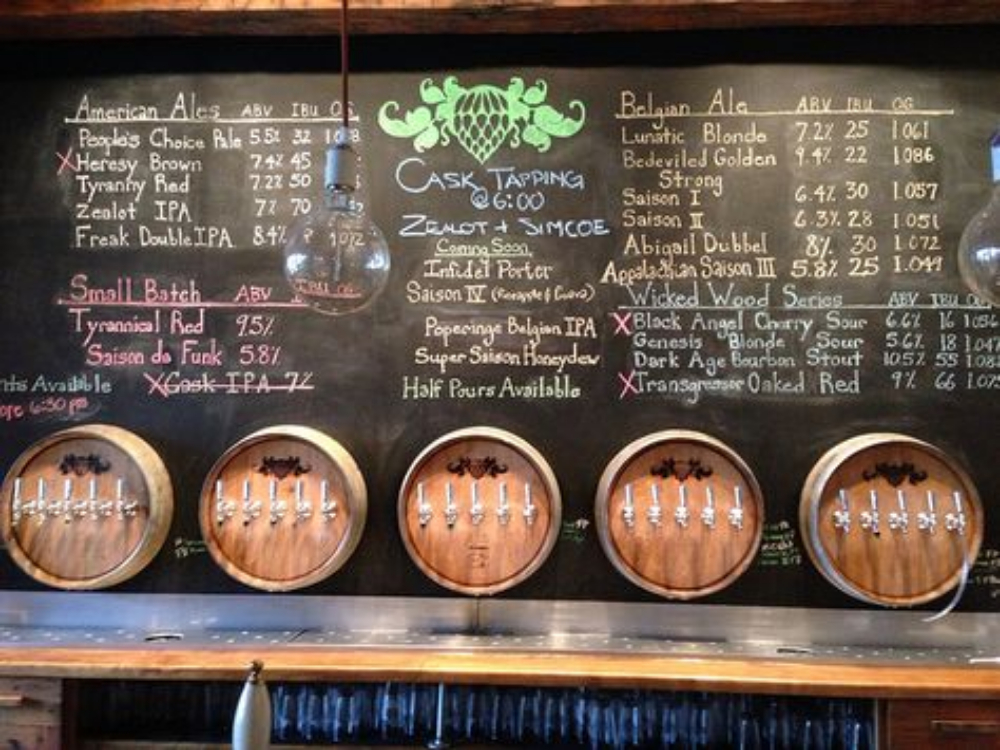 American Ales ABV IBU OG
People's Choice Pale 5.5% 32
X Heresy Brown 7.4% 45
Tyranny Red 7.2% 50
Zealot IPA 7% 70
Freak Double IPA 8.4% 1.072
Small Batch ABV IBU OG
Tyrannical Red 9.5%
Saison de Funk 5.8%
X Cask IPA 7%
Available
6:30 pm
Cask Tapping
@ 6:00
Zealot + Simcoe
Coming Soon
Infidel Porter
Saison IV (Pineapple & Guava)
Poperinge Belgian IPA
Super Saison Honeydew
Half Pours Available
Belgian Ale ABV IBU OG
Lunatic Blonde 7.2% 25 1.061
Bedeviled Golden 9.4% 22 1.086
Strong
Saison I 6.4% 30 1.057
Saison II 6.3% 28 1.051
Abigail Dubbel 8% 30 1.072
Appalachian Saison III 5.8% 25 1.049
Wicked Wood Series ABV IBU OG
X Black Angel Cherry Sour 6.6% 16 1.056
Genesis Blonde Sour 5.6% 18 1.047
Dark Age Bourbon Stout 10.5% 55
X Transgressor Oaked Red 9% 66